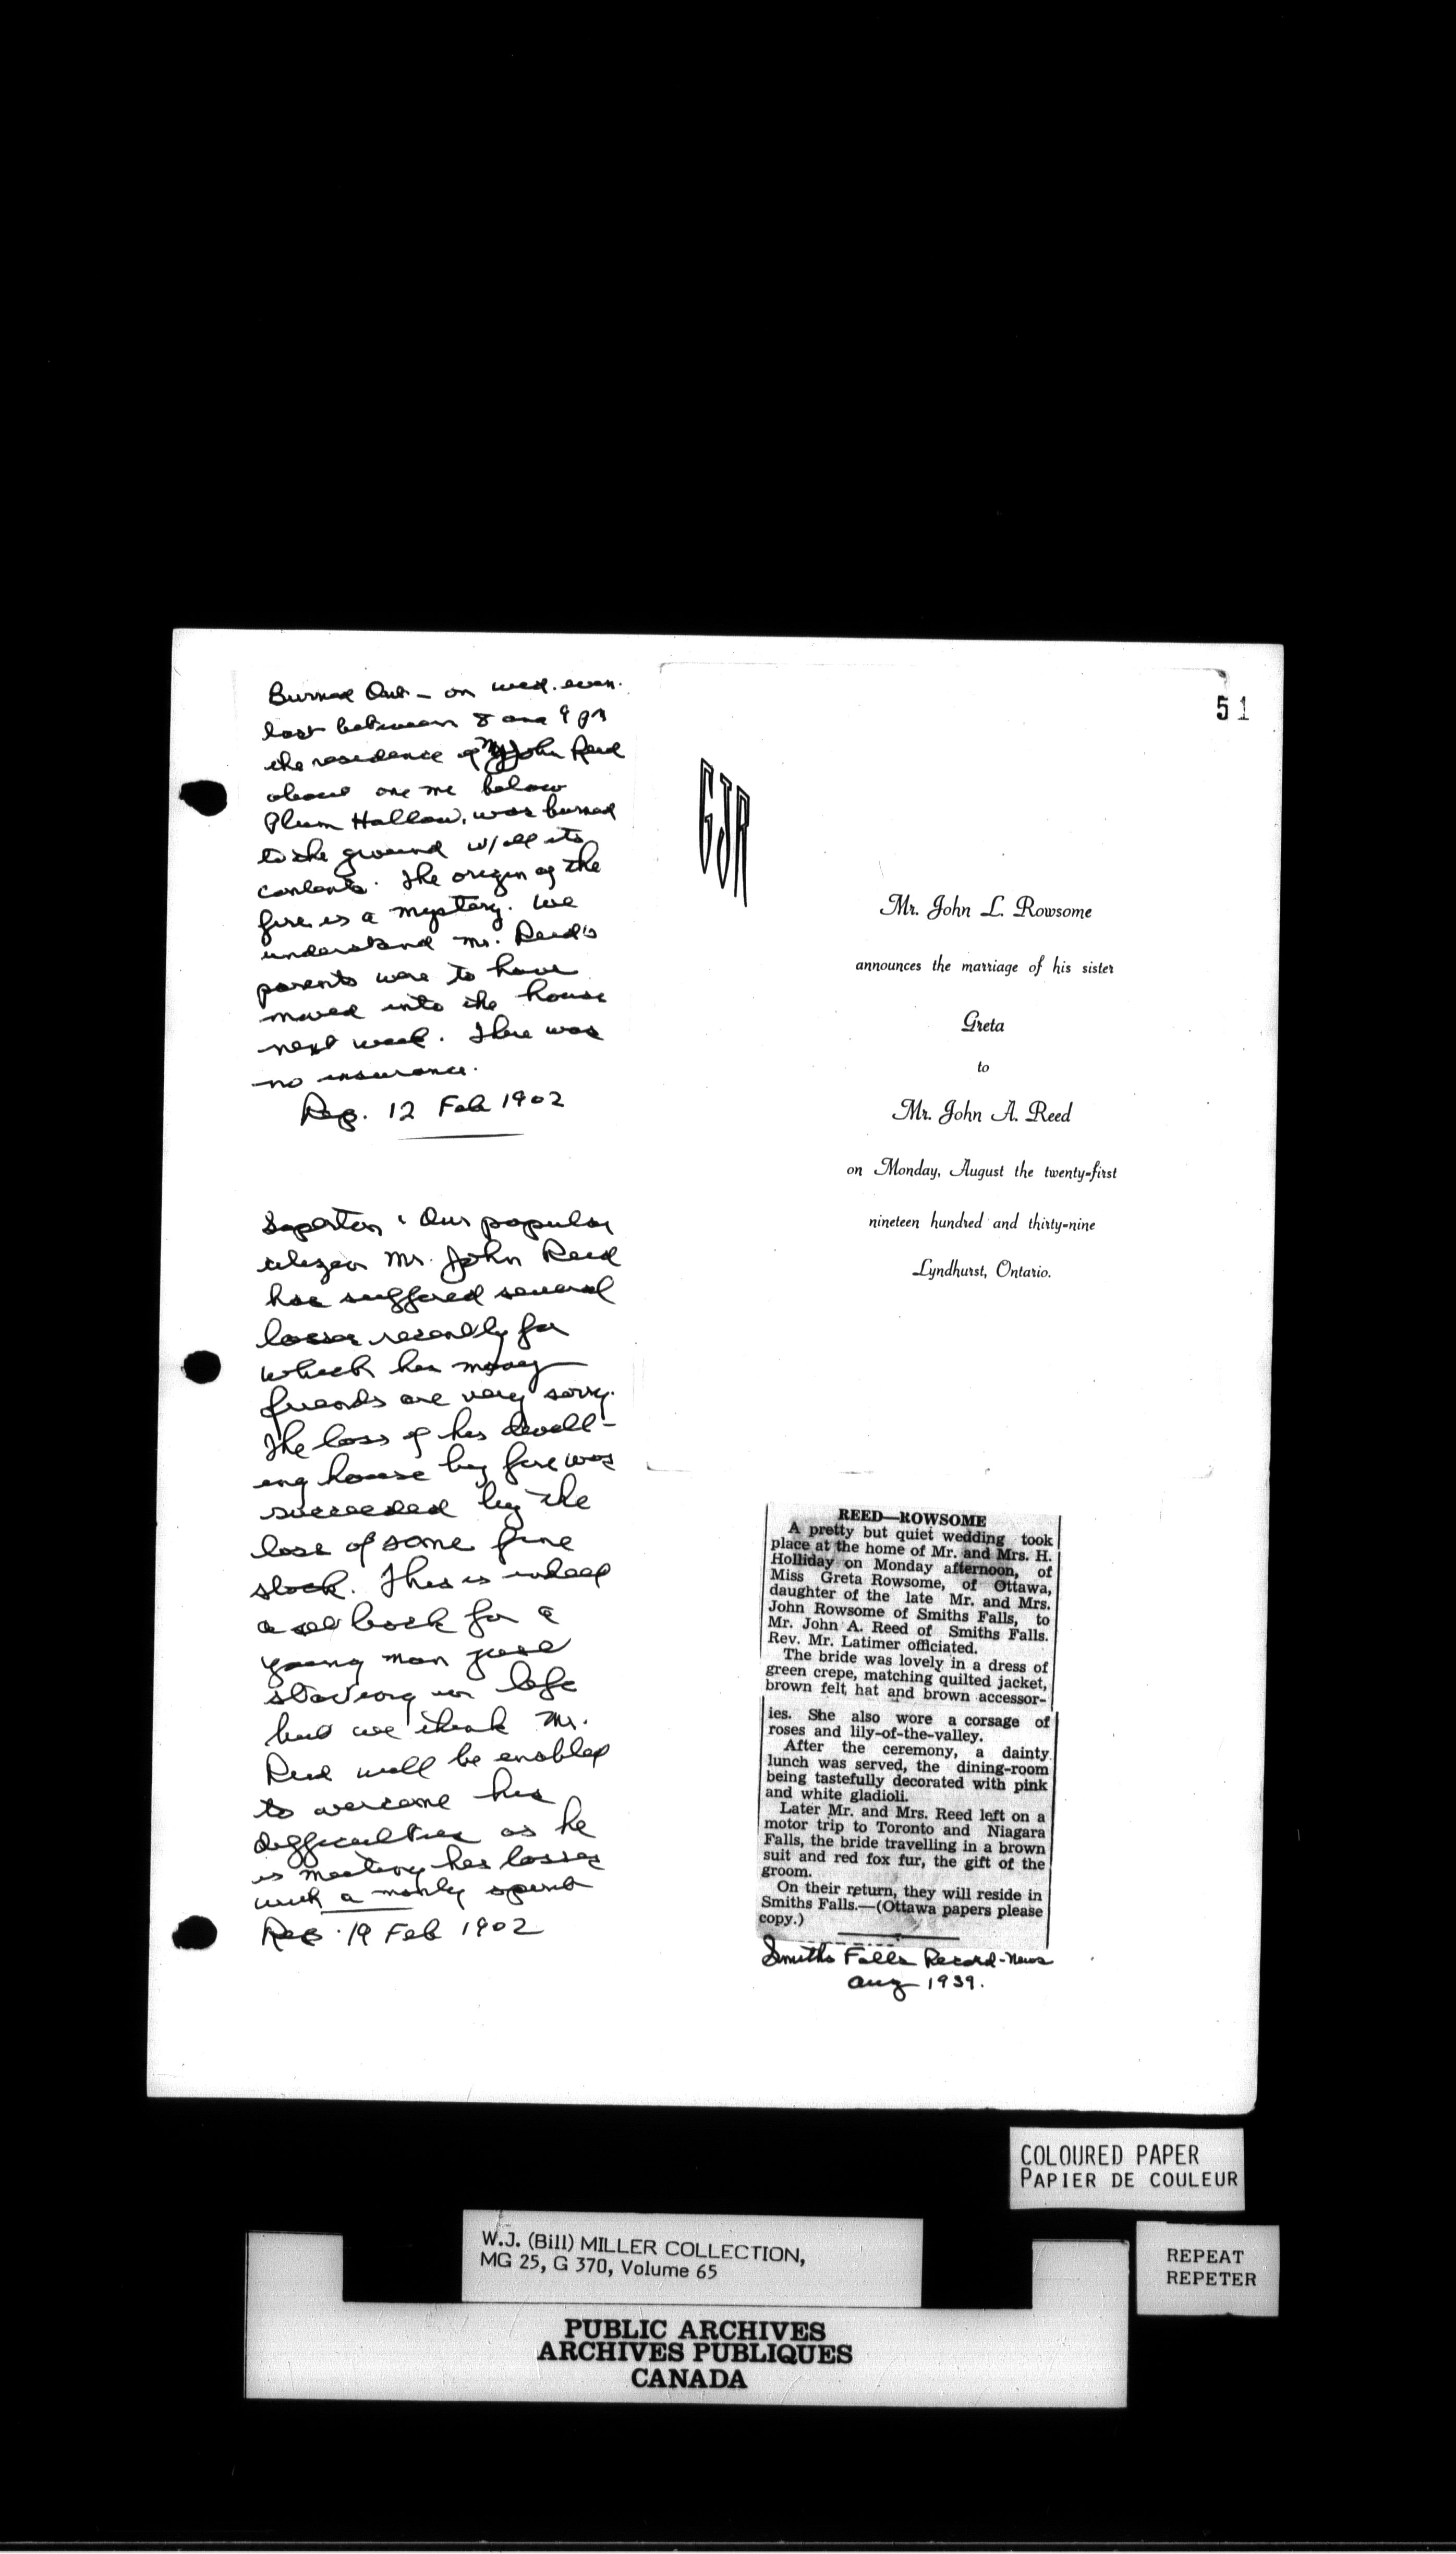 51
Burned Out - on wed. even.
last between 8 and 9 pm
the residence of Mr John Reed
about one mi below
Plum Hollow, was burned
to the ground w/all its
contents. The origin of the
fire is a mystery. We
understand Mr. Reed's
parents were to have
moved into the house
next week. There was
no insurance.
Rep. 12 Feb 1902
Soperton: Our popular
citizen Mr. John Reed
has suffered several
losses recently for
which his many
friends are very sorry.
The loss of his dwell-
ing house by fire was
succeeded by the
lose of some fine
stock. This is indeed
a set back for a
young man just
starting in life
but we think Mr.
Reed will be enabled
to overcome his
difficulties as he
is meeting his losses
with a manly spirit
Rep. 19 Feb 1902
GJR
Mr. John L. Rowsome
announces the marriage of his sister
Greta
to
Mr. John A. Reed
on Monday, August the twenty-first
nineteen hundred and thirty-nine
Lyndhurst, Ontario.
REED—ROWSOME
A pretty but quiet wedding took
place at the home of Mr. and Mrs. H.
Holliday on Monday afternoon, of
Miss Greta Rowsome, of Ottawa,
daughter of the late Mr. and Mrs.
John Rowsome of Smiths Falls, to
Mr. John A. Reed of Smiths Falls.
Rev. Mr. Latimer officiated.
The bride was lovely in a dress of
green crepe, matching quilted jacket,
brown felt hat and brown accessor-
ies. She also wore a corsage of
roses and lily-of-the-valley.
After the ceremony, a dainty
lunch was served, the dining-room
being tastefully decorated with pink
and white gladioli.
Later Mr. and Mrs. Reed left on a
motor trip to Toronto and Niagara
Falls, the bride travelling in a brown
suit and red fox fur, the gift of the
groom.
On their return, they will reside in
Smiths Falls.—(Ottawa papers please
copy.)
Smiths Falls Record-News
Aug 1939.
COLOURED PAPER
PAPIER DE COULEUR
W.J. (Bill) MILLER COLLECTION,
MG 25, G 370, Volume 65
REPEAT
REPETER
PUBLIC ARCHIVES
ARCHIVES PUBLIQUES
CANADA